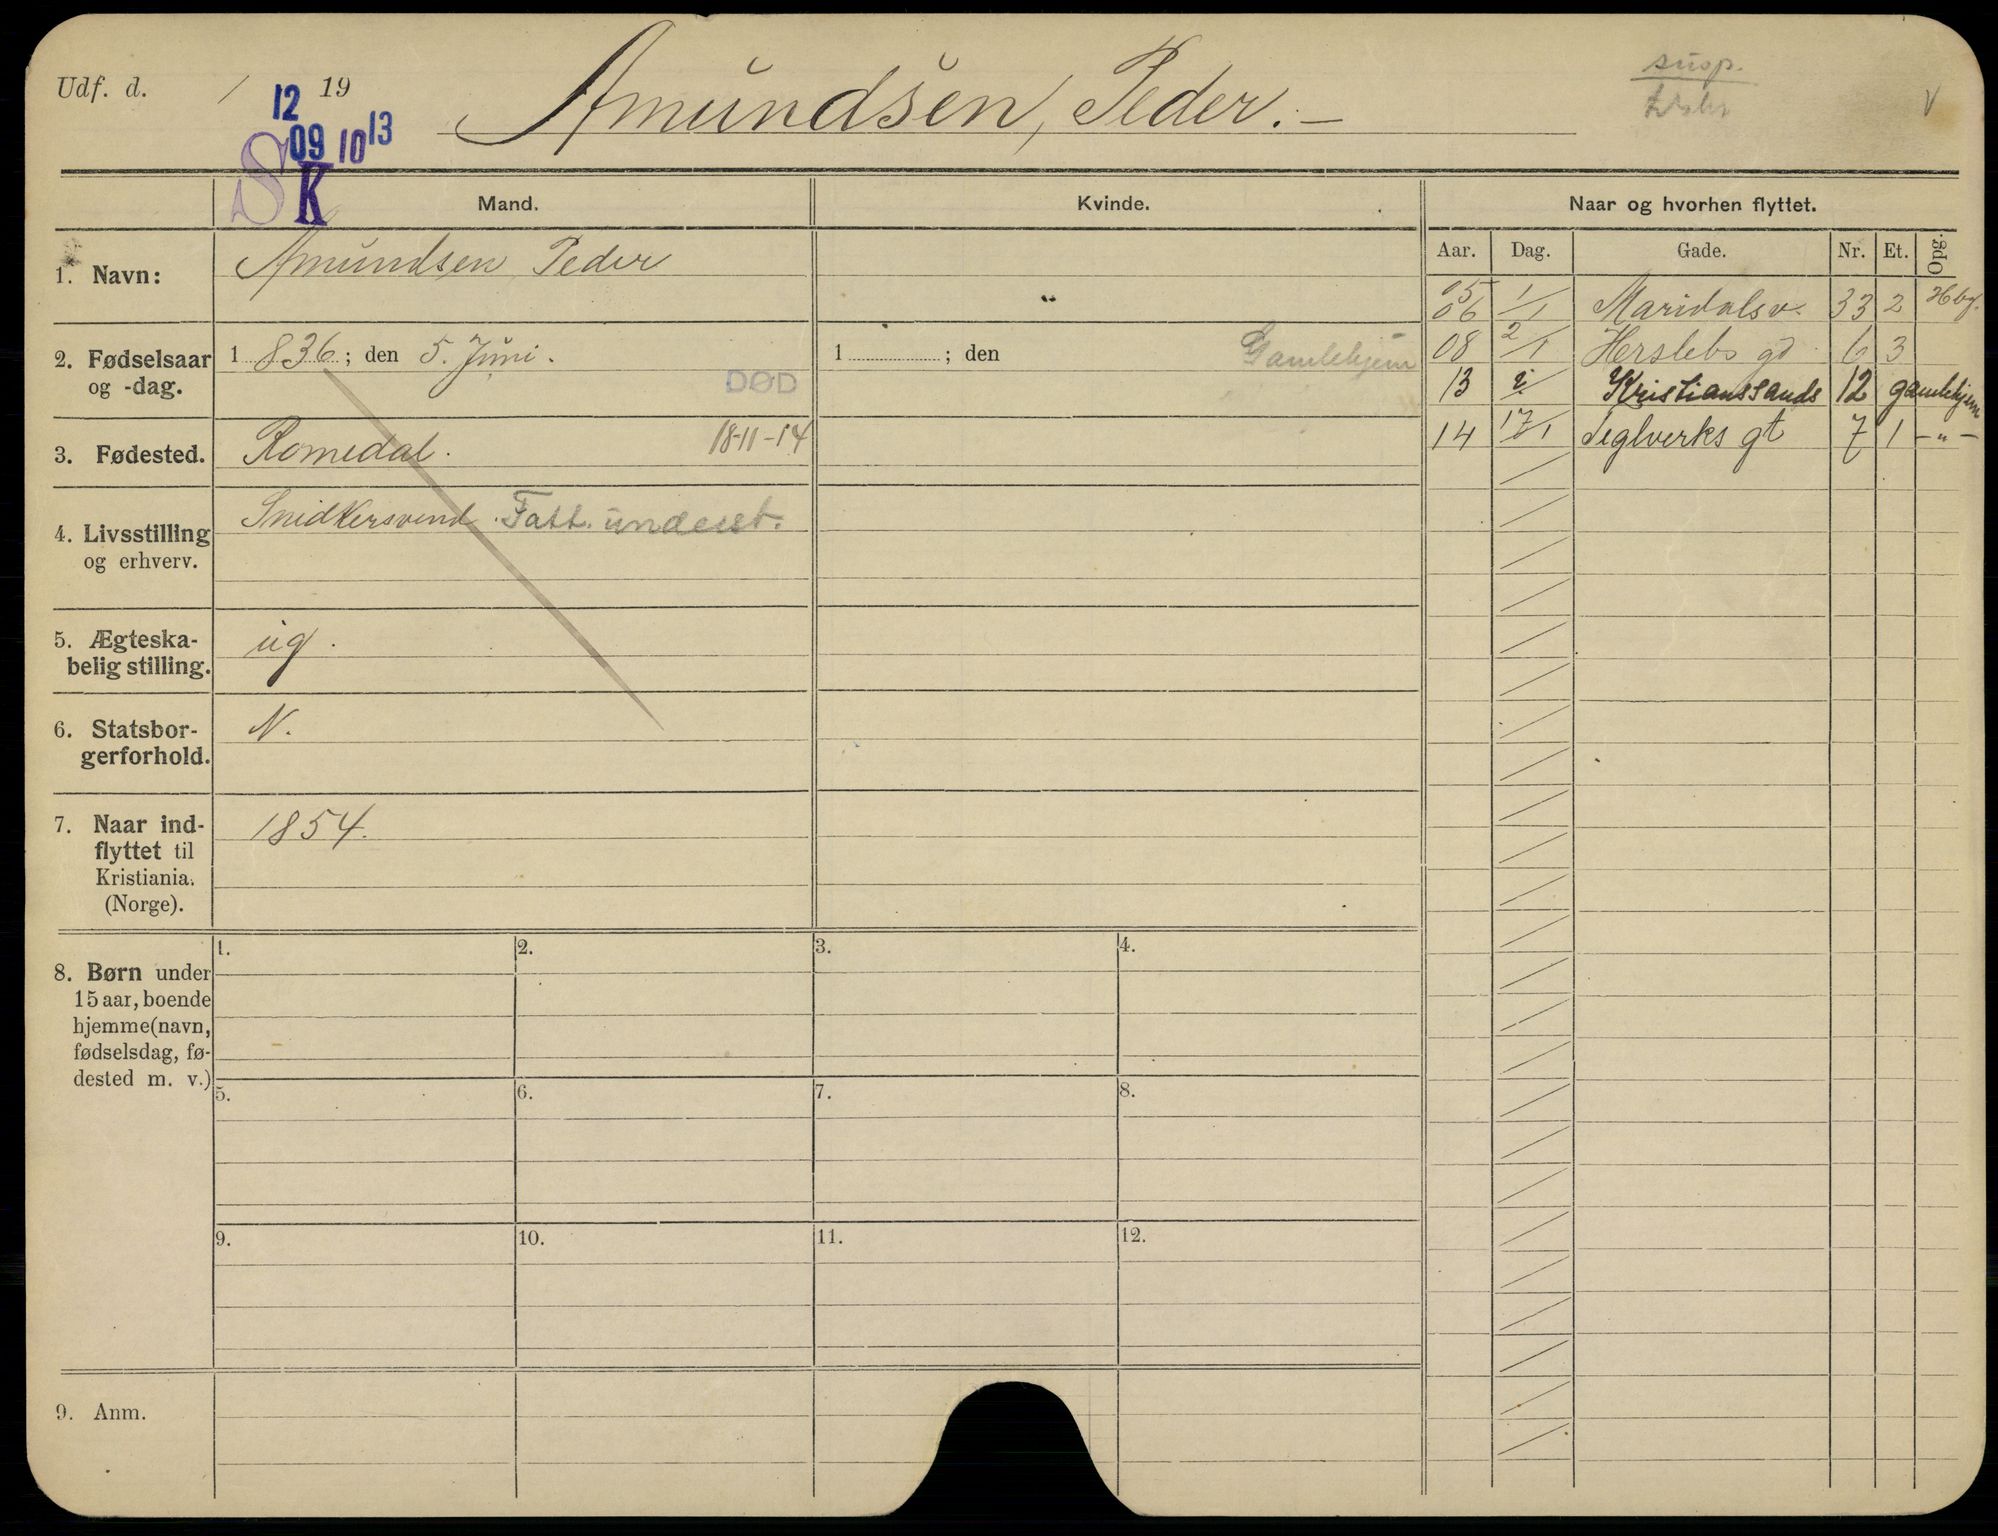 Udf. d. / 19
12
09 10 13
S K
Amundsen, Peder. —
susp.
V
Mand. Kvinde. Naar og hvorhen flyttet.
Aar. Dag. Gade. Nr. Et. Opg.
1. Navn: Amundsen, Peder "
05 1/1
06 Maridalsv. 33 2 Hbg.
2. Fødselsaar og -dag. 1 836; den 5. Juni. 1 ; den Gamlehjem
DØD
08 2/1 Herslebs gd. 6 3
13 Kristianssands 12 gamlehjem
14 17/1 Teglverks gt 7 1 – " –
3. Fødested. Romedal. 18-11-14
4. Livsstilling og erhverv. Snidkersvend. Fatt. underst.
5. Ægteska-
belig stilling. ug.
6. Statsbor-
gerforhold. N.
7. Naar ind-
flyttet til
Kristiania.
(Norge). 1854.
8. Børn under
15 aar, boende
hjemme (navn,
fødselsdag, fø-
dested m. v.)
1. 2. 3. 4.
5. 6. 7. 8.
9. 10. 11. 12.
9. Anm.